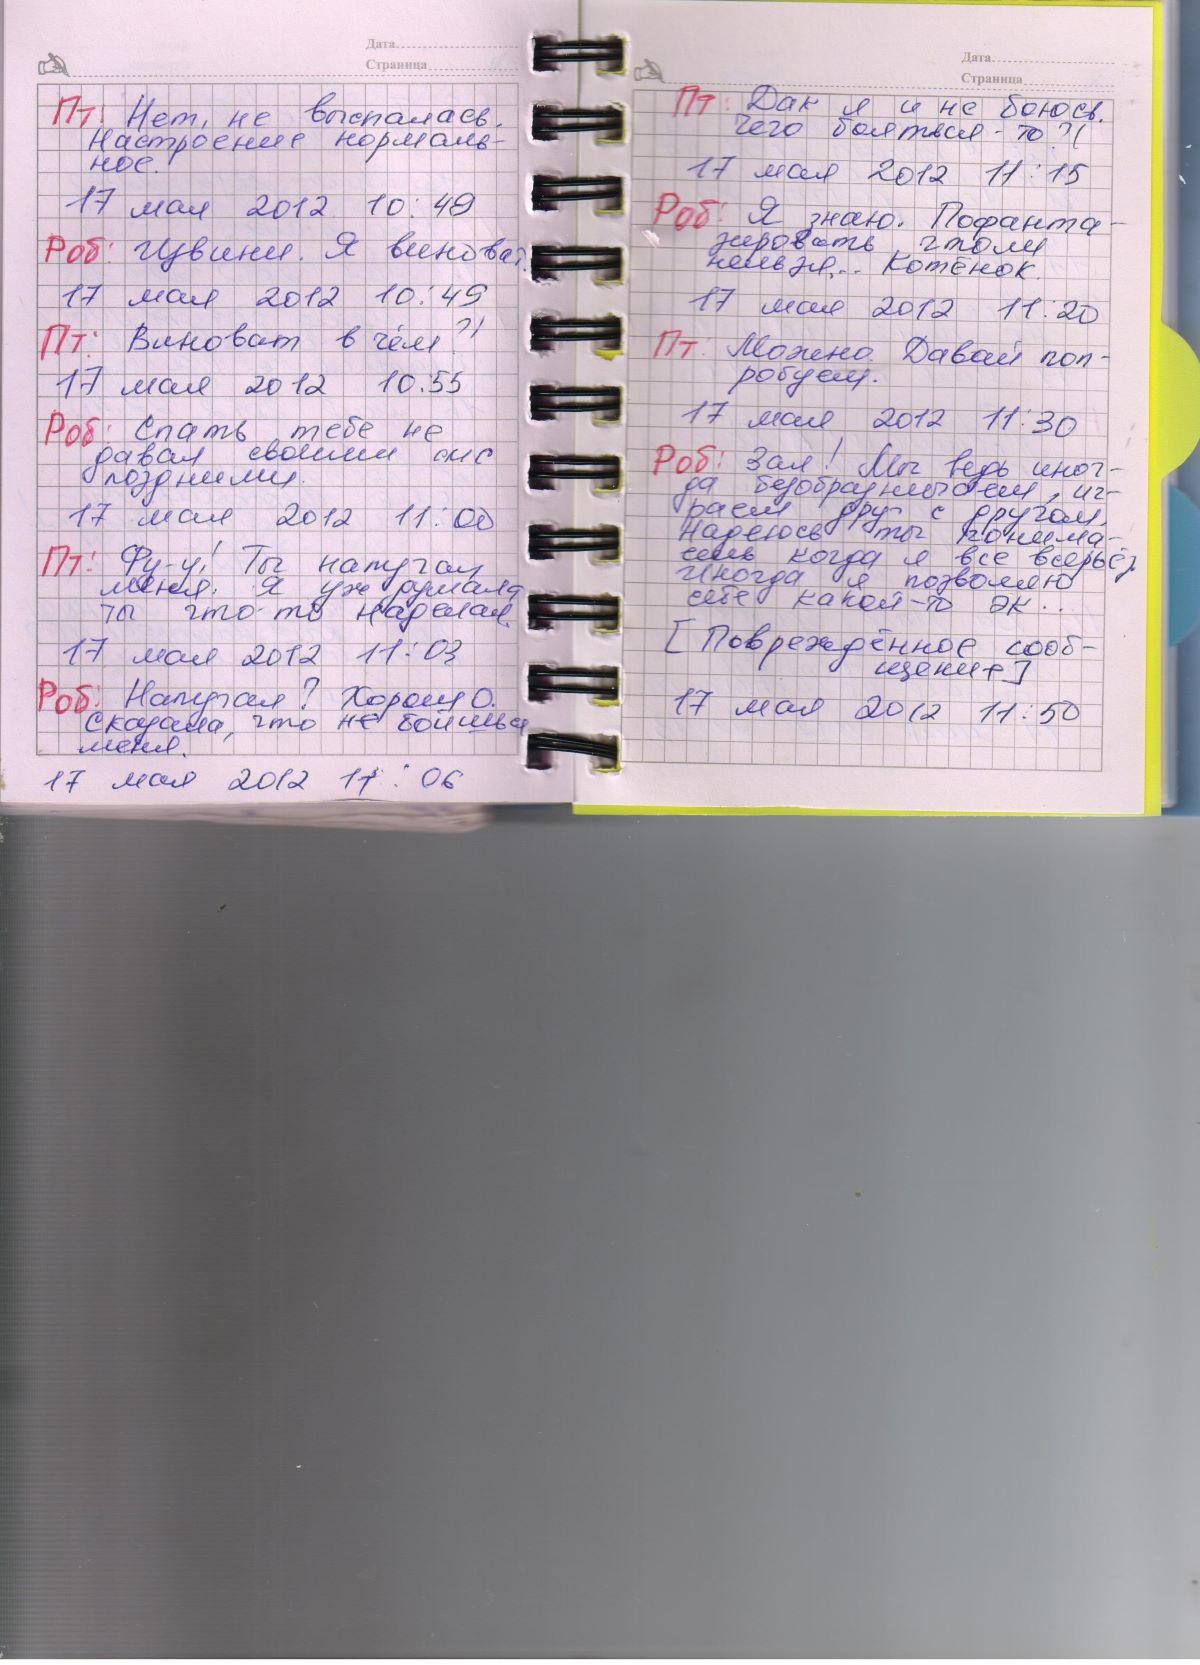 Дата
Страница
Пт: Нет, не выспалась.
Настроение нормаль-
ное.
17 мая 2012 10:49
Роб: Извини. Я виноват.
17 мая 2012 10:49
Пт: Виноват в чём?!
17 мая 2012 10:55
Роб: Спать тебе не
давал своими смс
поздними.
17 мая 2012 11:00
Пт: Фу-у! Ты напугал
меня. Я уж думала
ты что-то наделал.
17 мая 2012 11:03
Роб: Напугал? Хорошо.
сказала, что не боишься
меня.
17 мая 2012 11:06
Дата
Страница
Пт: Дак я и не боюсь.
Чего бояться-то?!
17 мая 2012 11:15
Роб: Я знаю. Пофанта-
зировать чтоли
нельзя... Котёнок.
17 мая 2012 11:20
Пт: Можно. Давай поп-
робуем.
17 мая 2012 11:30
Роб: Зая! Мы ведь иног-
да безобразничаем, иг-
раем друг с другом.
Надеюсь ты понима-
ешь когда я все всерьёз
Иногда я позволяю
себе какой-то эк..
[Повреждённое сооб-
щение]
17 мая 2012 11:50